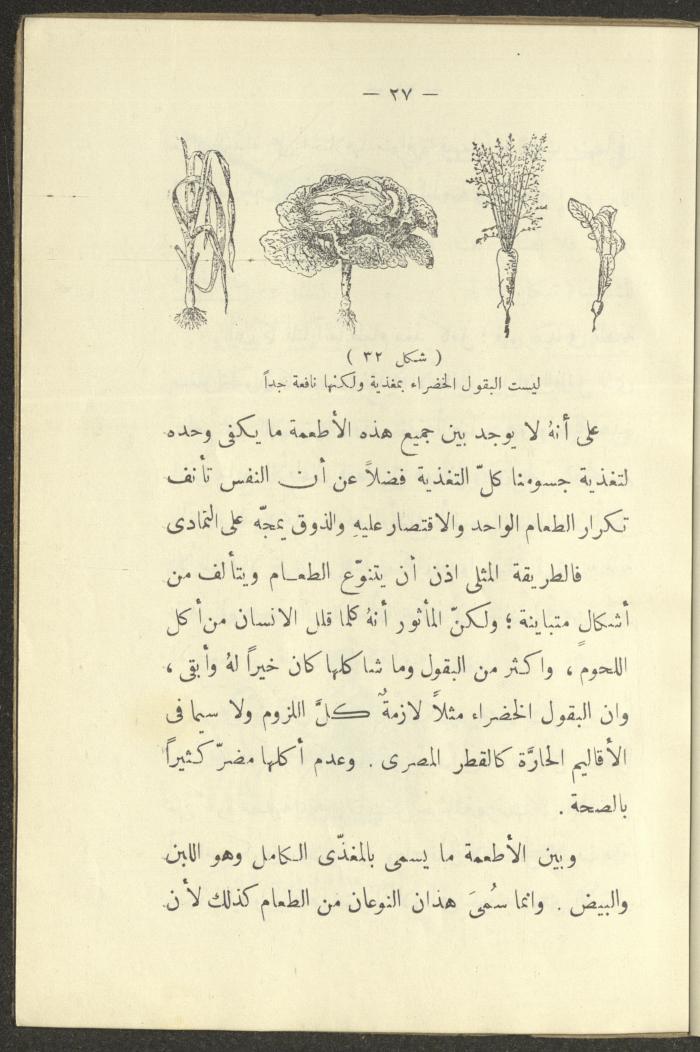 — ٢٧ —
( شكل ٣٢ )
ليست البقول الخضراء بمغذية ولكنها نافعة جداً
على أنهُ لا يوجد بين جميع هذه الأطعمة ما يكفى وحده
لتغذية جسومنا كلّ التغذية فضلاً عن أن النفس تأنف
تكرار الطعام الواحد والاقتصار عليهِ والذوق يمجّه على التمادى
فالطريقة المثلى اذن أن يتنوّع الطعام ويتألف من
أشكالٍ متباينة ؛ ولكنّ المأثور أنهُ كلما قلل الانسان من أكل
اللحوم ، واكثر من البقول وما شاكلها كان خيراً لهُ وأبقى ،
وان البقول الخضراء مثلاً لازمةٌ كلَّ اللزوم ولا سيما فى
الأقاليم الحارَّة كالقطر المصرى . وعدم أكلها مضرّ كثيراً
بالصحة .
وبين الأطعمة ما يسمى بالمغذّى الكامل وهو اللبن
والبيض . وانما سُمىَ هذان النوعان من الطعام كذلك لأن